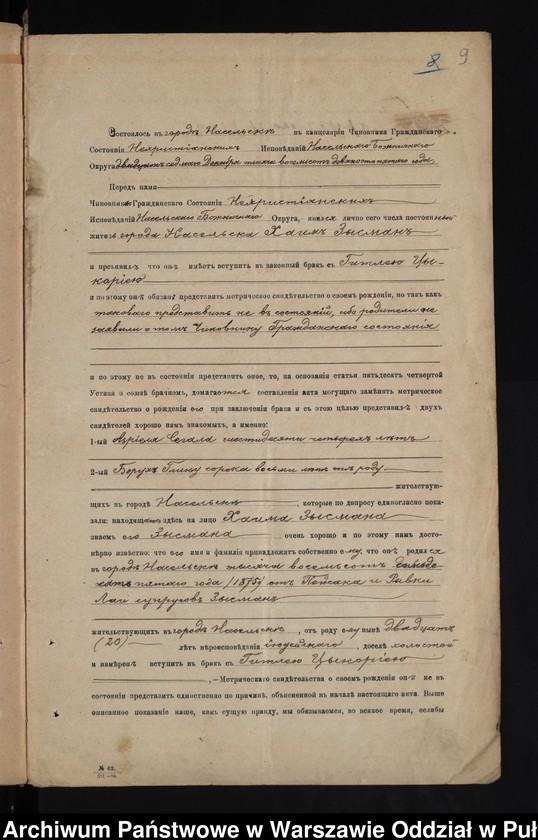 8 9
Состоялось въ городѣ Насельскѣ въ канцеляріи Чиновника Гражданскаго
Состоянія Нехристіанскихъ Исповѣданій Насельскаго Божничнаго
Округа двадцать седьмаго Декабря тысяча восемьсотъ девяносто пятаго года.
Передъ нами
Чиновникѣ Гражданскаго Состоянія Нехристіанскихъ
Исповѣданій Насельскаго Божничнаго Округа, явился лично сего числа постоянный
житель города Насельска Хаимъ Зысманъ
и предъявилъ что онъ имѣетъ вступить въ законный бракъ съ Гитлею Цы-
норіею
и поэтому онъ обязанъ представить метрическое свидѣтельство о своемъ рожденіи, но такъ какъ
таковаго представить не въ состояніи, ибо родители не
заявили о томъ Чиновнику Гражданскаго состоянія
и по этому не въ состояніи представить оное, то, на основаніи статьи пятьдесятъ четвертой
Устава о союзѣ брачномъ, домогается составленія акта могущаго замѣнить метрическое
свидѣтельство о рожденіи его при заключеніи брака и съ этою цѣлью представилъ двухъ
свидѣтелей хорошо намъ знакомыхъ, а именно:
1-ый Сегала шестидесяти четырехъ лѣтъ
2-ый Борухъ Глину сорока восьми лѣтъ отъ роду
жительствую-
щихъ въ городѣ Насельскѣ, которые по допросу единогласно пока-
зали: находящагося здѣсь на лицо Хаима Зысмана
знаемъ его Зысмана очень хорошо и по этому намъ досто-
вѣрно извѣстно: что его имя и фамилія принадлежатъ собственно ему, что онъ родился
въ городѣ Насельскѣ тысяча восемьсотъ семьде-
сятъ пятаго года /1875/ отъ Пейсака и Ривки
Лаи супруговъ Зысманъ
жительствующихъ въ городѣ Насельскѣ, отъ роду ему нынѣ двадцать
(20) лѣтъ вѣроисповѣданія іудейскаго, доселѣ холостой
и намѣренъ вступить въ бракъ съ Гитлею Цынорією
,—Метрическаго свидѣтельства о своемъ рожденіи онъ не въ
состояніи представить единственно по причинѣ, объясненной въ началѣ настоящаго акта. Выше
описанное показаніе наше, какъ сущую правду, мы обязываемся, во всякое время, еслибы
№ 62.
Archiwum Państwowe w Warszawie Oddział w Puł